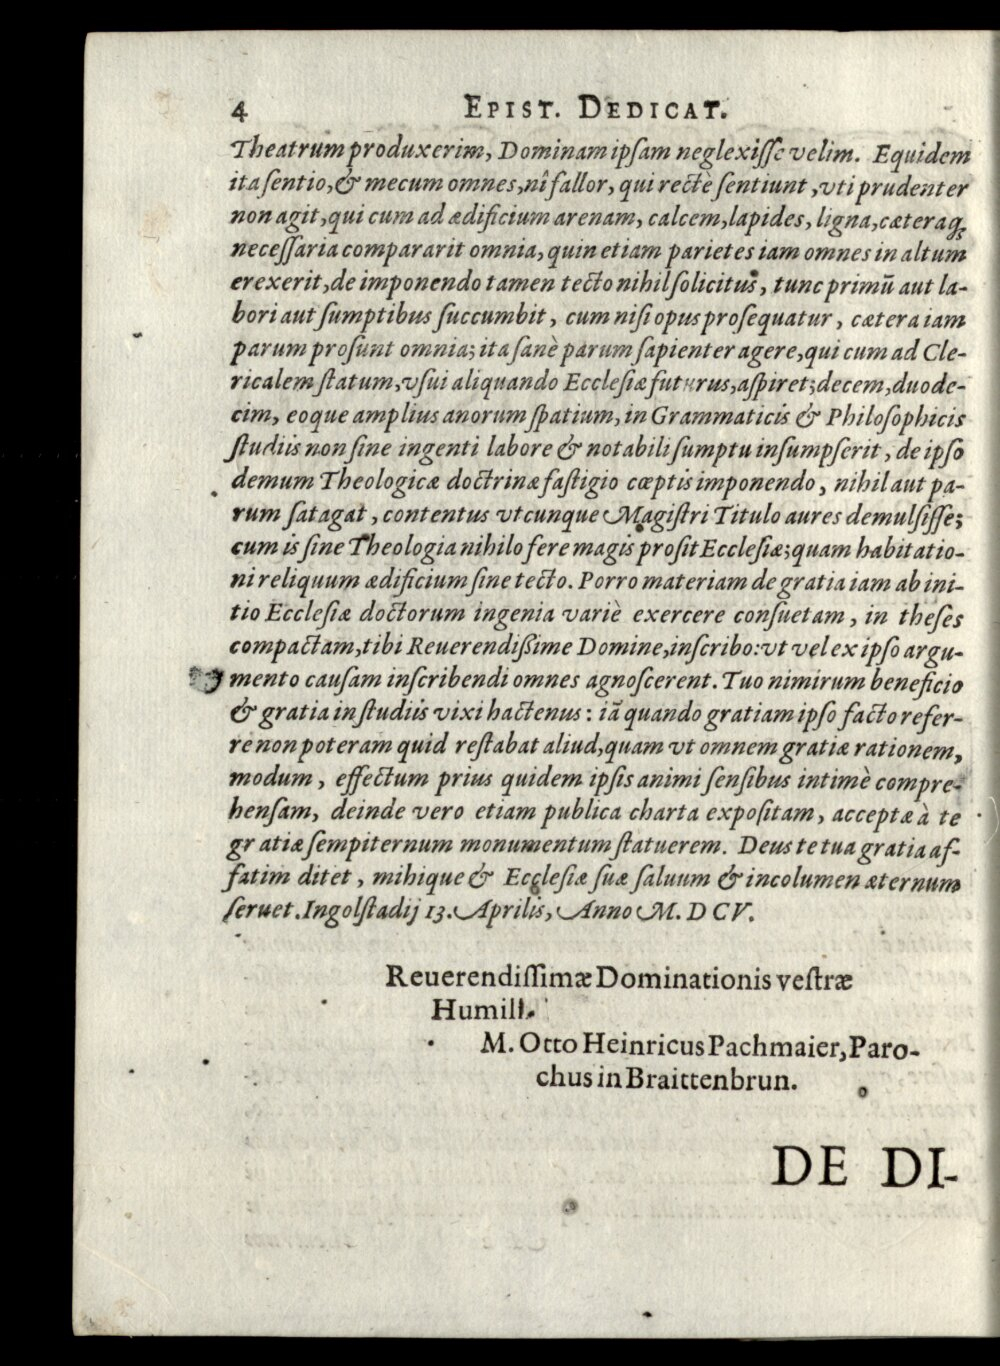 4 EPIST. DEDICAT.
Theatrum produxerim, Dominam ipſam neglexiſſe velim. Equidem
ita ſentio, & mecum omnes, nî fallor, qui rectè ſentiunt, vti prudenter
non agit, qui cum ad ædificium arenam, calcem, lapides, ligna, cæteraq;
neceſſaria compararit omnia, quin etiam parietes iam omnes in altum
erexerit, de imponendo tamen tecto nihil ſolicitus, tunc primū aut la-
bori aut ſumptibus ſuccumbit, cum niſi opus proſequatur, cætera iam
parum proſunt omnia; ita ſanè parum ſapienter agere, qui cum ad Cle-
ricalem ſtatum, vſui aliquando Eccleſiæ futurus, aſpiret; decem, duode-
cim, eoque amplius anorum ſpatium, in Grammaticis & Philoſophicis
ſtudiis non ſine ingenti labore & notabili ſumptu inſumpſerit, de ipſo
demum Theologicæ doctrinæ faſtigio cœptis imponendo, nihil aut pa-
rum ſatagat, contentus vtcunque Magiſtri Titulo aures demulſiſſe;
cum is ſine Theologia nihilo fere magis proſit Eccleſiæ; quam habitatio-
ni reliquum ædificium ſine tecto. Porro materiam de gratia iam ab ini-
tio Eccleſiæ doctorum ingenia variè exercere conſuetam, in theſes
compactam, tibi Reuerendißime Domine, inſcribo: vt vel ex ipſo argu-
mento cauſam inſcribendi omnes agnoſcerent. Tuo nimirum beneficio
& gratia in ſtudiis vixi hactenus: iā quando gratiam ipſo facto refer-
re non poteram quid reſtabat aliud, quam vt omnem gratiæ rationem,
modum, effectum prius quidem ipſis animi ſenſibus intimè compre-
henſam, deinde vero etiam publica charta expoſitam, acceptæ à te
gratiæ ſempiternum monumentum ſtatuerem. Deus te tua gratia af-
fatim ditet, mihique & Eccleſiæ ſuæ ſaluum & incolumen æternum
ſeruet. Ingolſtadij 13. Aprilis, Anno M. DCV.
Reuerendiſſimæ Dominationis veſtræ
Humill.
M. Otto Heinricus Pachmaier, Paro-
chus in Braittenbrun.
DE DI-